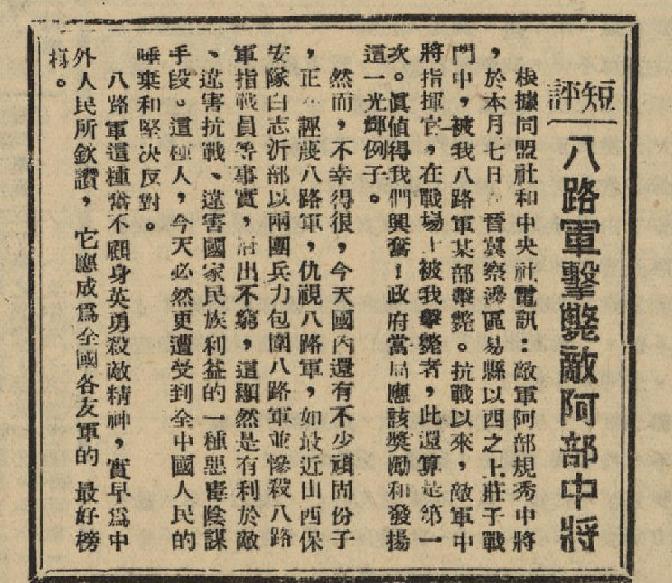 短評
八路軍擊斃敵阿部中將
根據同盟社和中央社電訊：敵軍阿部規秀中將
，於本月七日在晉冀察邊區易縣以西之上莊子戰
門中，被我八路軍某部擊斃。抗戰以來，敵軍中
將指揮官，在戰場上被我擊斃者，此還算是第一
次。眞值得我們興奮！政府當局應該獎勵和發揚
這一光輝例子。
然而，不幸得很，今天國內還有不少頑固份子
，正在誣蔑八路軍，仇視八路軍，如最近山西保
安隊白志沂部以兩團兵力包圍八路軍並慘殺八路
軍指戰員等事實，層出不窮，這顯然是有利於敵
、違害抗戰、違害國家民族利益的一種惡毒陰謀
手段。這種人，今天必然更遭受到全中國人民的
唾棄和堅决反對。
八路軍這種奮不顧身英勇殺敵精神，實早爲中
外人民所欽讚，它應成爲全國各友軍的最好榜
樣。